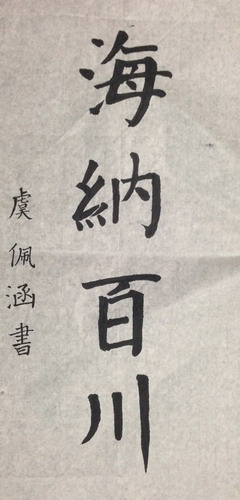 海納百川
虞佩涵書